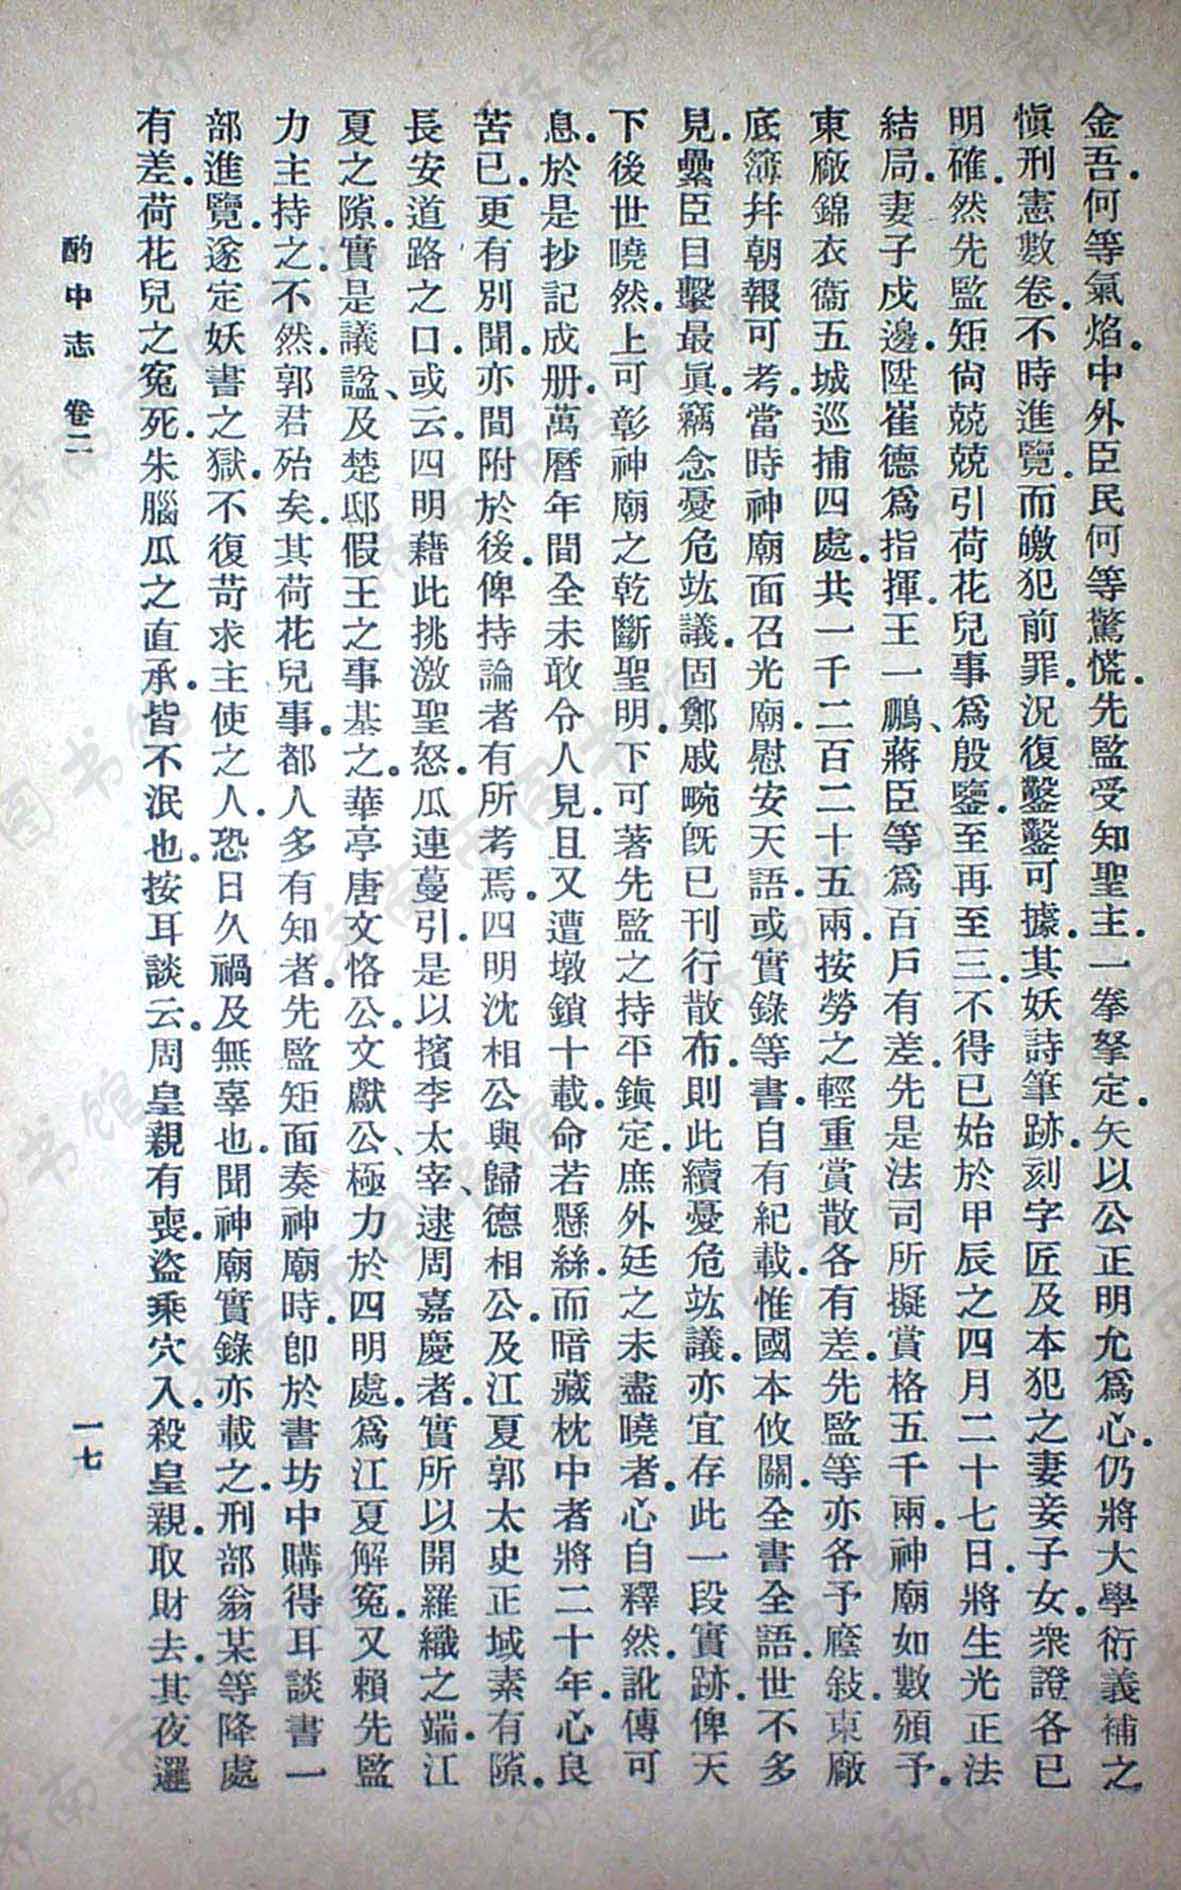 金吾。何等氣焰。中外臣民何等驚慌。先監受知聖主。一拳拏定。矢以公正明允爲心。仍將大學衍義補之
愼刑憲數卷。不時進覽。而皦犯前罪。況復鑿鑿可據。其妖詩筆跡。刻字匠及本犯之妻妾子女。衆證各已
明確。然先監矩尙兢兢引荷花兒事爲殷鑒。至再至三。不得已始於甲辰之四月二十七日。將生光正法
結局。妻子戍邊。陞崔德爲指揮。王一鵬、蔣臣等爲百戶有差。先是法司所擬賞格五千兩。神廟如數頒予。
東廠錦衣衞五城巡捕四處。共一千二百二十五兩。按勞之輕重賞散各有差。先監等亦各予廕敍。東廠
底簿幷朝報可考。當時神廟面召光廟。慰安天語。或實錄等書。自有紀載。惟國本攸關。全書全語。世不多
見。纍臣目擊最眞。竊念憂危竑議。固鄭戚畹旣已刊行散布。則此續憂危竑議。亦宜存此一段實跡。俾天
下後世曉然。上可彰神廟之乾斷聖明。下可著先監之持平鎭定。庶外廷之未盡曉者。心自釋然。訛傳可
息。於是抄記成册。萬曆年間全未敢令人見。且又遭墩鎖十載。命若懸絲。而暗藏枕中者將二十年。心良
苦已。更有別聞。亦間附於後。俾持論者有所考焉。四明沈相公與歸德相公。及江夏郭太史正域素有隙。
長安道路之口。或云。四明藉此挑激聖怒。瓜連蔓引。是以擯李太宰、逮周嘉慶者。實所以開羅織之端。江
夏之隙。實是議諡、及楚邸假王之事基之。華亭唐文恪公。文獻公、極力於四明處。爲江夏解冤。又賴先監
力主持之。不然。郭君殆矣。其荷花兒事。都人多有知者。先監矩面奏神廟時。卽於書坊中購得耳談書一
部進覽。遂定妖書之獄。不復苛求主使之人。恐日久禍及無辜也。聞神廟實錄亦載之。刑部翁某等降處
有差。荷花兒之冤死。朱腦瓜之直承。皆不泯也。按耳談云。周皇親有喪。盜乘穴入。殺皇親。取財去。其夜邏
酌中志　卷二　一七